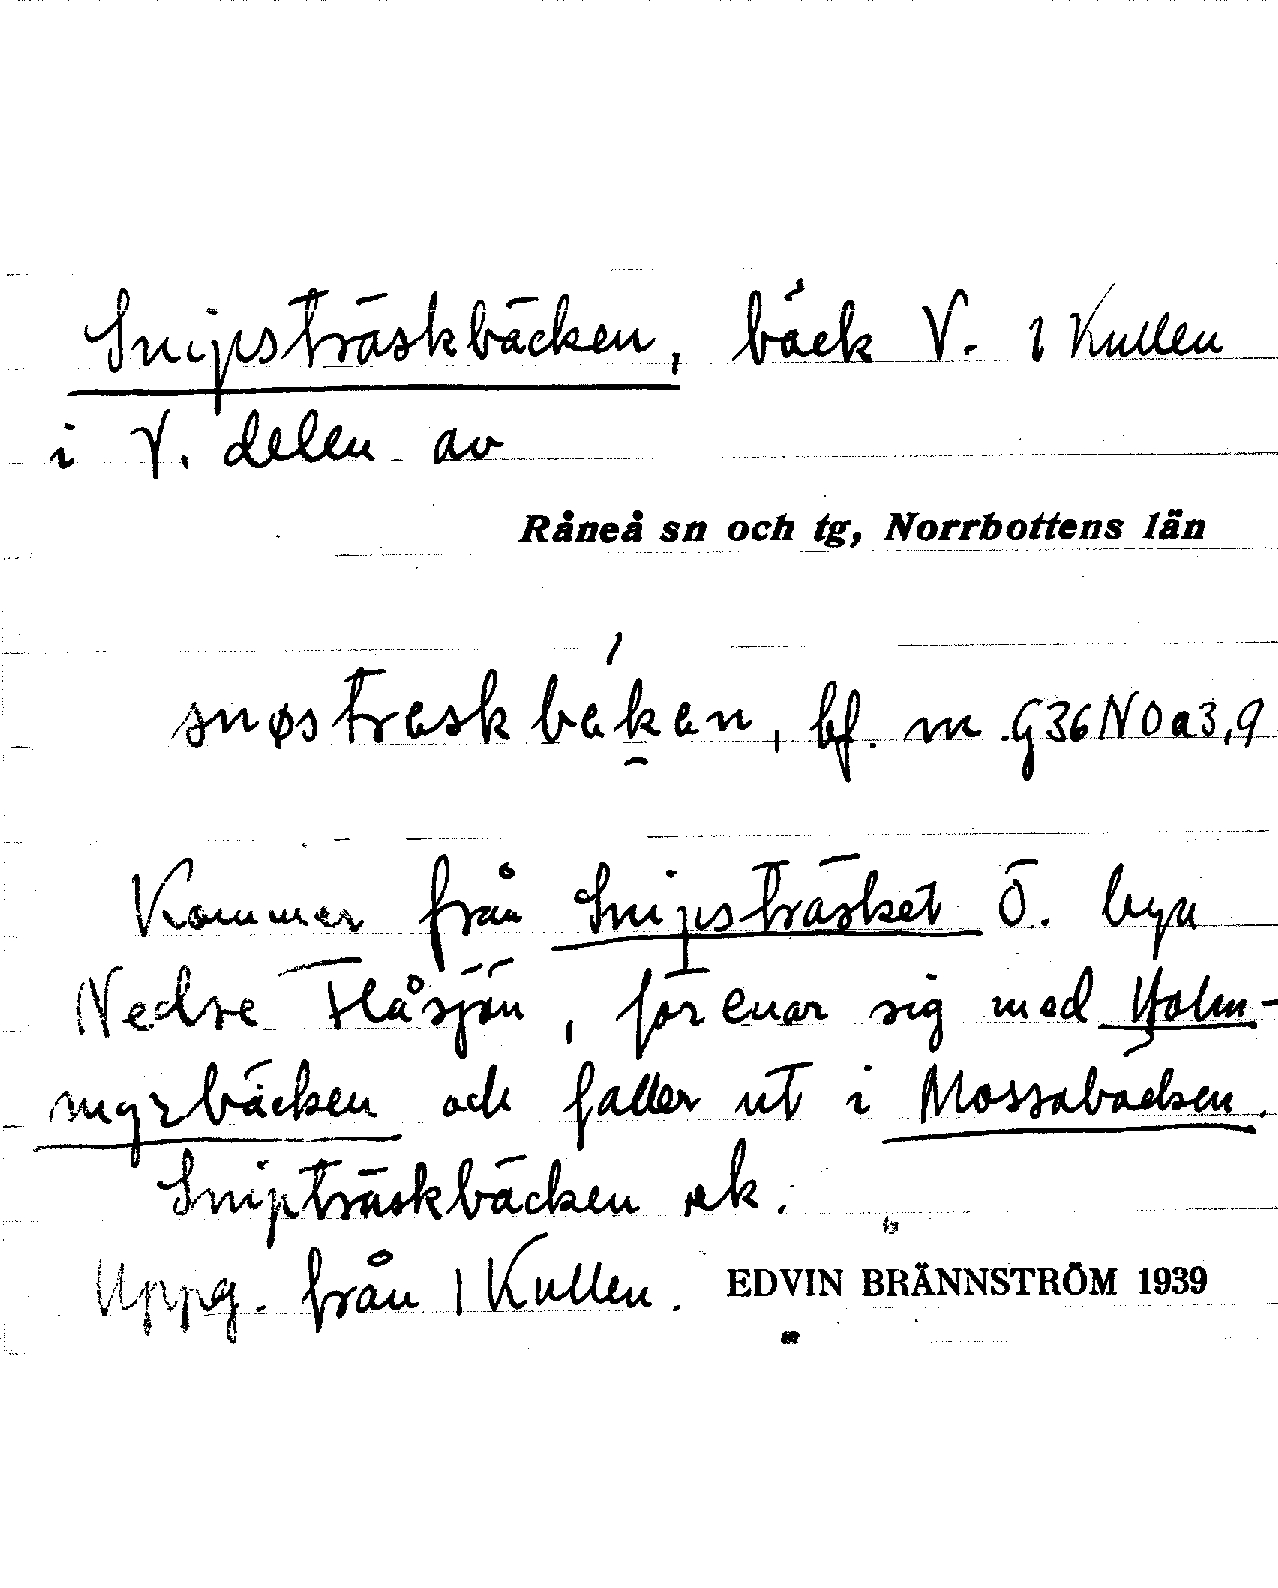 Snipsträskbäcken, bäck V. 1 Kullen
i V. delen av
Råneå sn och tg, Norrbottens län
snøstraskbekan, bf. m G36N0a3,9
Kommer från Snipsträsket Ö. byn
Nedre Flåsjön, förenar sig med Holm-
myrbäcken och faller ut i Mossabäcken.
Snipträskbäcken ek.
Uppg. från 1 Kullen. EDVIN BRÄNNSTRÖM 1939